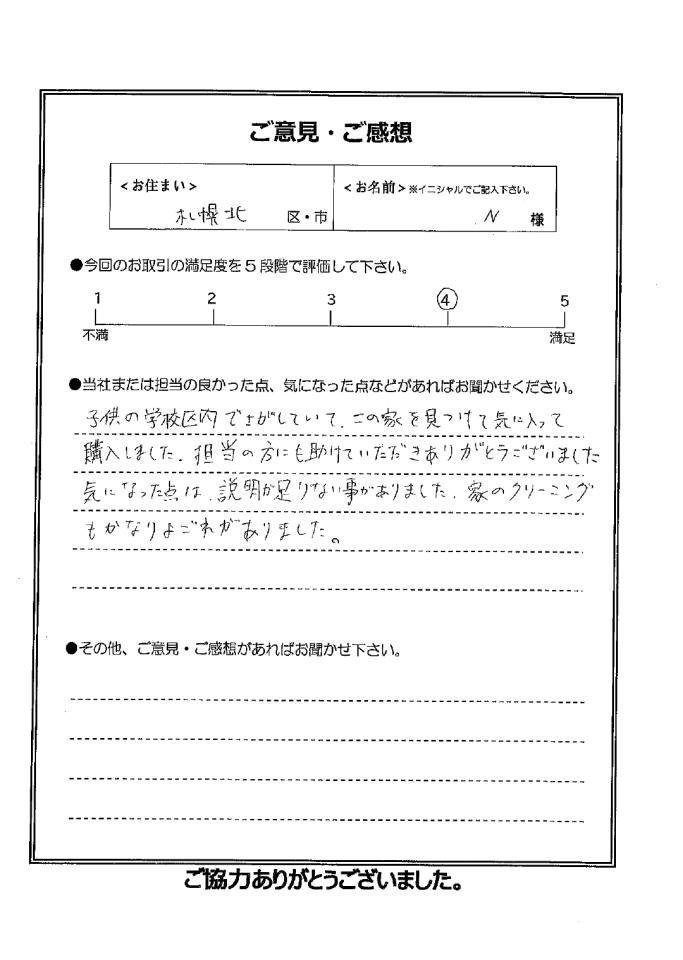 ご意見・ご感想
<お住まい>
札幌北 区・市
<お名前>※イニシャルでご記入下さい。
N 様
●今回のお取引の満足度を5段階で評価して下さい。
1 2 3 4 5
不満 満足
●当社または担当の良かった点、気になった点などがあればお聞かせください。
子供の学校区内でさがしていて、この家を見つけて気に入って
購入しました。担当の方にも助けていただきありがとうございました
気になった点は、説明が足りない事がありました。家のクリーニング
もかなりよごれがありました。
●その他、ご意見・ご感想があればお聞かせ下さい。
ご協力ありがとうございました。